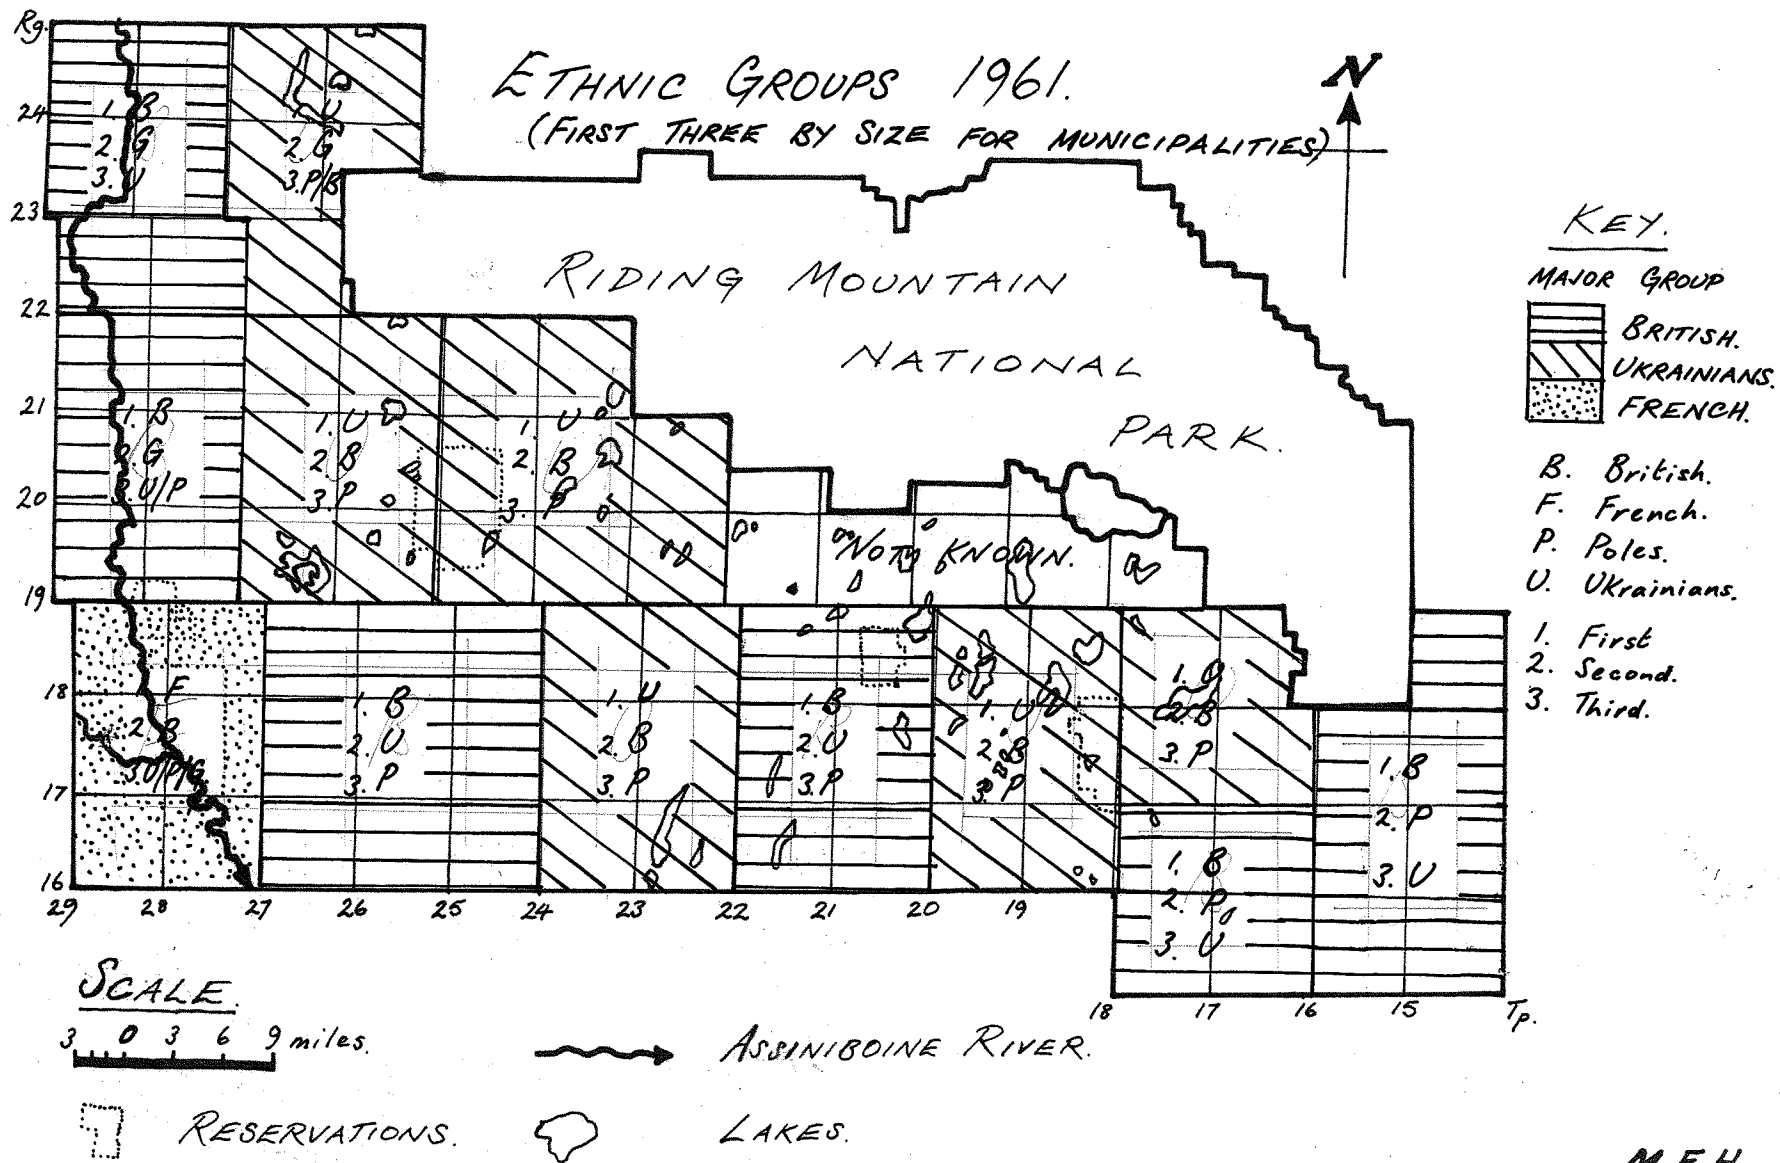 Rg.
ETHNIC GROUPS 1961.
(FIRST THREE BY SIZE FOR MUNICIPALITIES)
N
24
1. B
2. G
3. U
1. U
2. G
3. P/B
23
RIDING MOUNTAIN
NATIONAL
PARK.
22
21
1. B
2. G
3. U/P
1. U
2. B
3. P
1. U
2. B
3. P
20
NOT KNOWN.
19
18
1. F
2. B
3. U/P/G
1. B
2. U
3. P
1. U
2. B
3. P
1. B
2. U
3. P
1. U
2. B
3. P
1. U
2. B
3. P
1. B
2. P
3. U
17
1. B
2. P
3. U
16
29 28 27 26 25 24 23 22 21 20 19
18 17 16 15 Tp.
KEY.
MAJOR GROUP
BRITISH.
UKRAINIANS.
FRENCH.
B. British.
F. French.
P. Poles.
U. Ukrainians.
1. First
2. Second.
3. Third.
SCALE.
3 0 3 6 9 miles.
ASSINIBOINE RIVER.
RESERVATIONS.
LAKES.